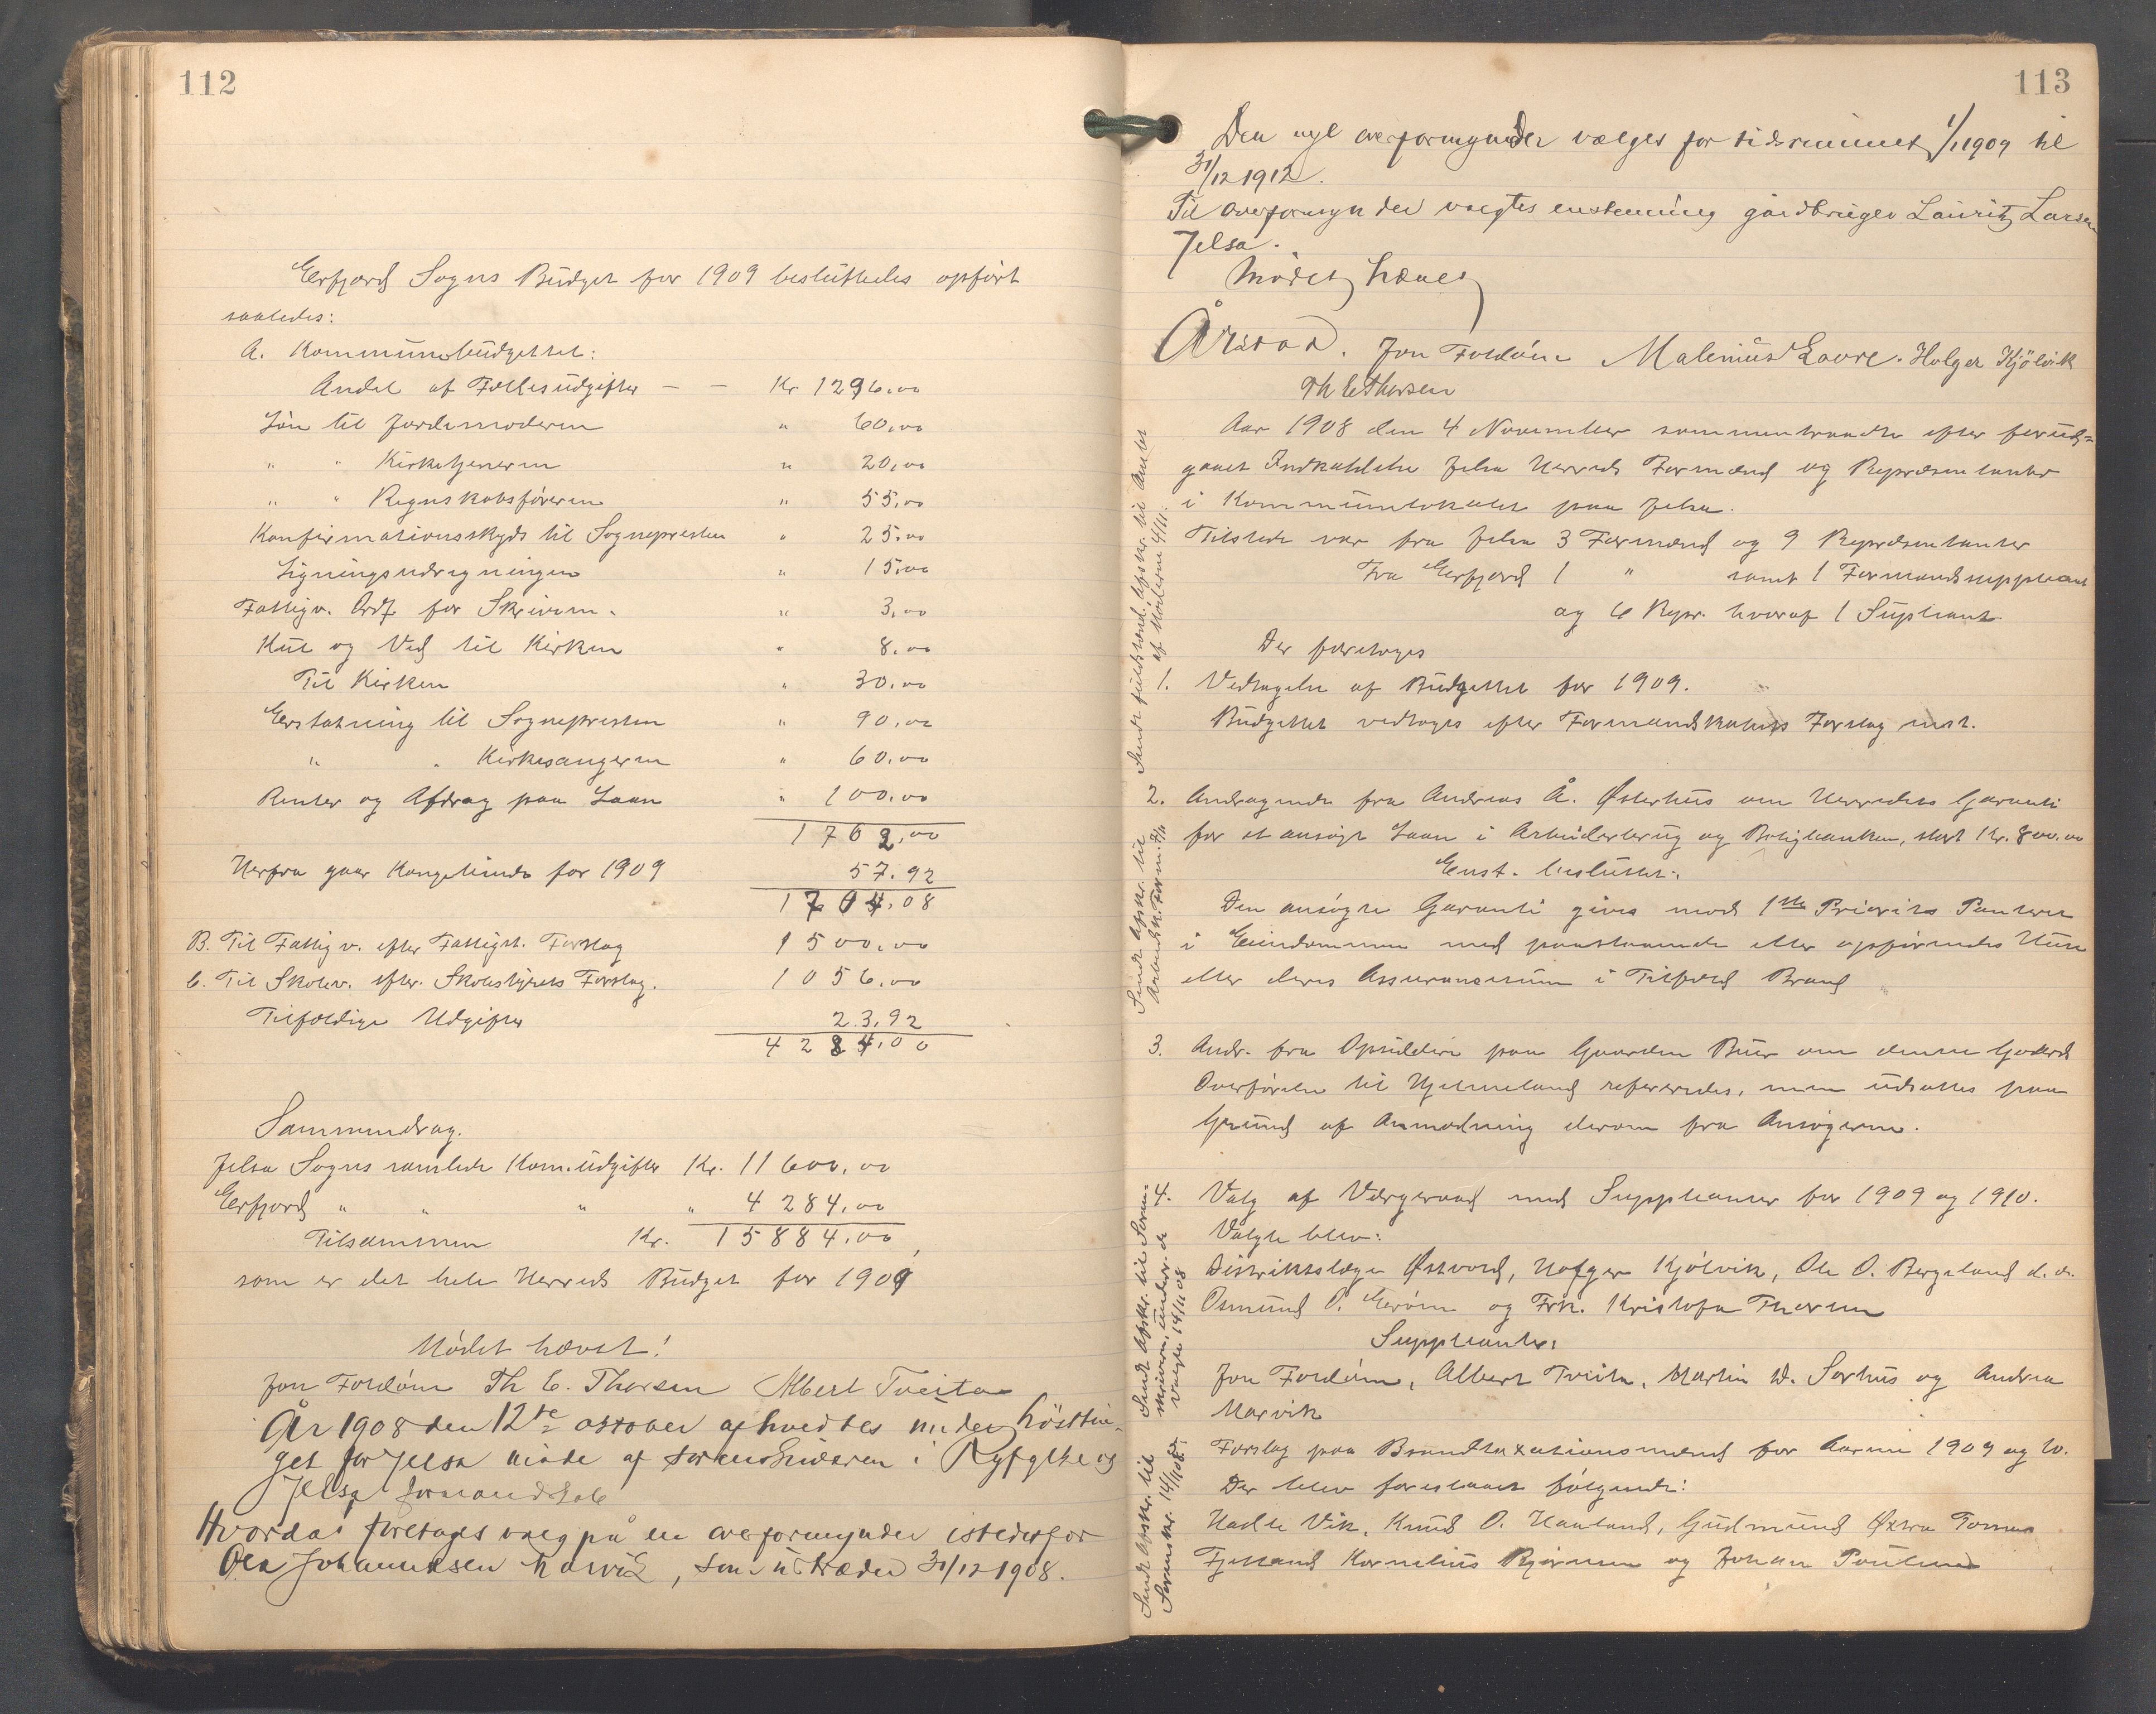 112
Erfjord Sogns Budget for 1909 besluttedes opført
saaledes:
A. Kommunebudgettet:
Andel af Fællesudgifter — — Kr 1296,00
Løn til Jordemoderen " 60,00
" " Kirketjeneren " 20,00
" " Regnskabsføreren " 55,00
Konfirmationsskyds til Sognepresten " 25,00
Ligningsudregningen " 15,00
Fattigv. Ordf for Skrivem. " 3,00
Kul og Ved til Kirken " 8,00
Til Kirken " 30,00
Erstatning til Sognepresten " 90,00
" " Kirkesangeren " 60,00
Renter og Afdrag paa Laan " 100,00
1762,00
Herfra gaar Kongetiende for 1909 57.92
1704,08
B. Til Fattigv. efter Fattigst. Forslag 1500,00
C. Til Skolev. efter Skolestyrets Forslag. 1056,00
Tilfældige Udgifter 23,92
4284,00
Sammendrag.
Jelsa Sogns samlede Kom.udgifter Kr. 11600,00
Erfjord " " " " 4284,00
Tilsammen Kr. 15884,00,
som er det hele Herreds Budget for 1909
Mødet hævet!
Jon Foldøen Th C. Thorsen Albert Tveita
År 1908 den 12te oktober afholdtes under høstthin-
get for Jelsa møde af sorenskriveren i Ryfylke og
Jelsa formandskab
Hvorda foretages valg på en overformynder istedetfor
Ola Johannesen Marvik, som udtræder 31/12 1908.
113
Den nye overformynder vælges for tidsrummet 1/1 1909 til
31/12 1912.
Til overformynder valgtes enstemmig gårdbruger Lauritz Larsen
Jelsa.
Mødet hævet
Årstad. Jon Foldøen Malenius Lovre. Holger Kjölvik
Th C Thorsen
Aar 1908 den 4 November sammentraadte efter forud-
gaaet Indkaldelse Jelsa Herreds Formænd og Repræsentanter
i Kommunelokalet paa Jelsa.
Tilstede var fra Jelsa 3 Formænd og 9 Repræsentanter
Fra Erfjord 1 " samt 1 Formandsuppleant
og 6 Repr. hvoraf 1 Supleant
Der foretoges
1. Vedtagelse af Budgettet for 1909.
Budgettet vedtoges efter Formandskabets Forslag enst.
Sendt fuldstænd. Afskr. til Amtet
af Møderne 4/11.
2. Andragende fra Andreas Å. Østerhus om Herredets Garanti
for et ansøgt Laan i Arbeiderbrug og Boligbanken, stort Kr. 800.00
Enst. besluttet:
Den ansøgte Garanti gives mod 1ste Prioritets Panteret
i Eiendommen med paastaaende eller opførendes Huse
eller deres Assurancesum i Tilfæld Brand
Sendt Afskr. til
3. Andr. fra Opsiddere paa Gaarden Bur om denne Gaards
Overførelse til Hjelmeland refereredes, men udsattes paa
Grund af Anmodning derom fra Ansøgerne.
4. Valg af Værgeraad med Suppleanter for 1909 og 1910.
Valgte blev:
Distriktslæge Østvold, Holger Kjölvik, Ole O. Bergeland d.æ.
Osmund O. Erøen og Frk. Kristofa Thorsen
Suppleanter:
Jon Foldøen, Albert Tveita, Martin D. Sørhus og Andrea
Marvik
Sendt Afskr. til Soren-
skriveren, underr. de
valgte 14/11 08
Forslag paa Brandtaxationsmænd for Aarene 1909 og 10.
Der blev foreslaaet følgende:
Hadle Vik, Knud O. Haaland, Gudmund Øxtra Tomas
Fjelland Kornelius Bjørnen og Johan Poulsen
Sendt Afskr. til
Sorenskr. 14/11 08.